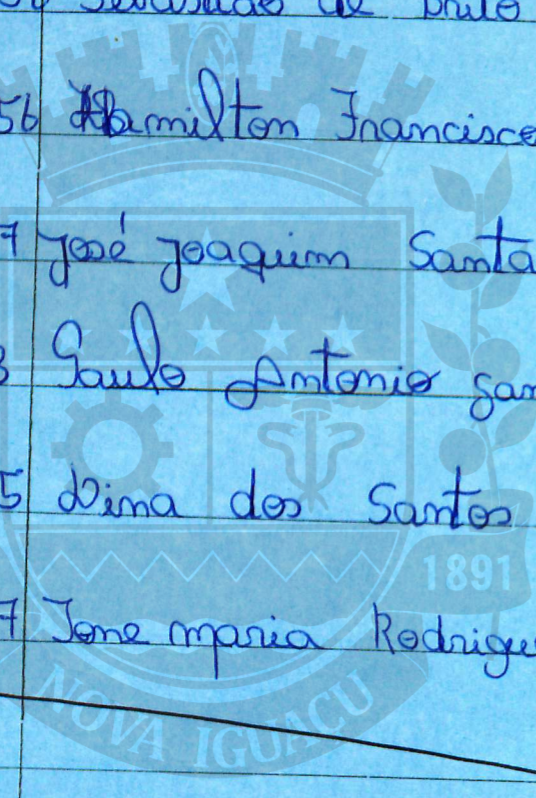 Sebastião de Brito
56 Hamilton Francisco
7 José Joaquim Santa
3 Paulo Antonio San
5 Dina dos Santos
1891
7 Ione maria Rodrigu
NOVA IGUAÇU